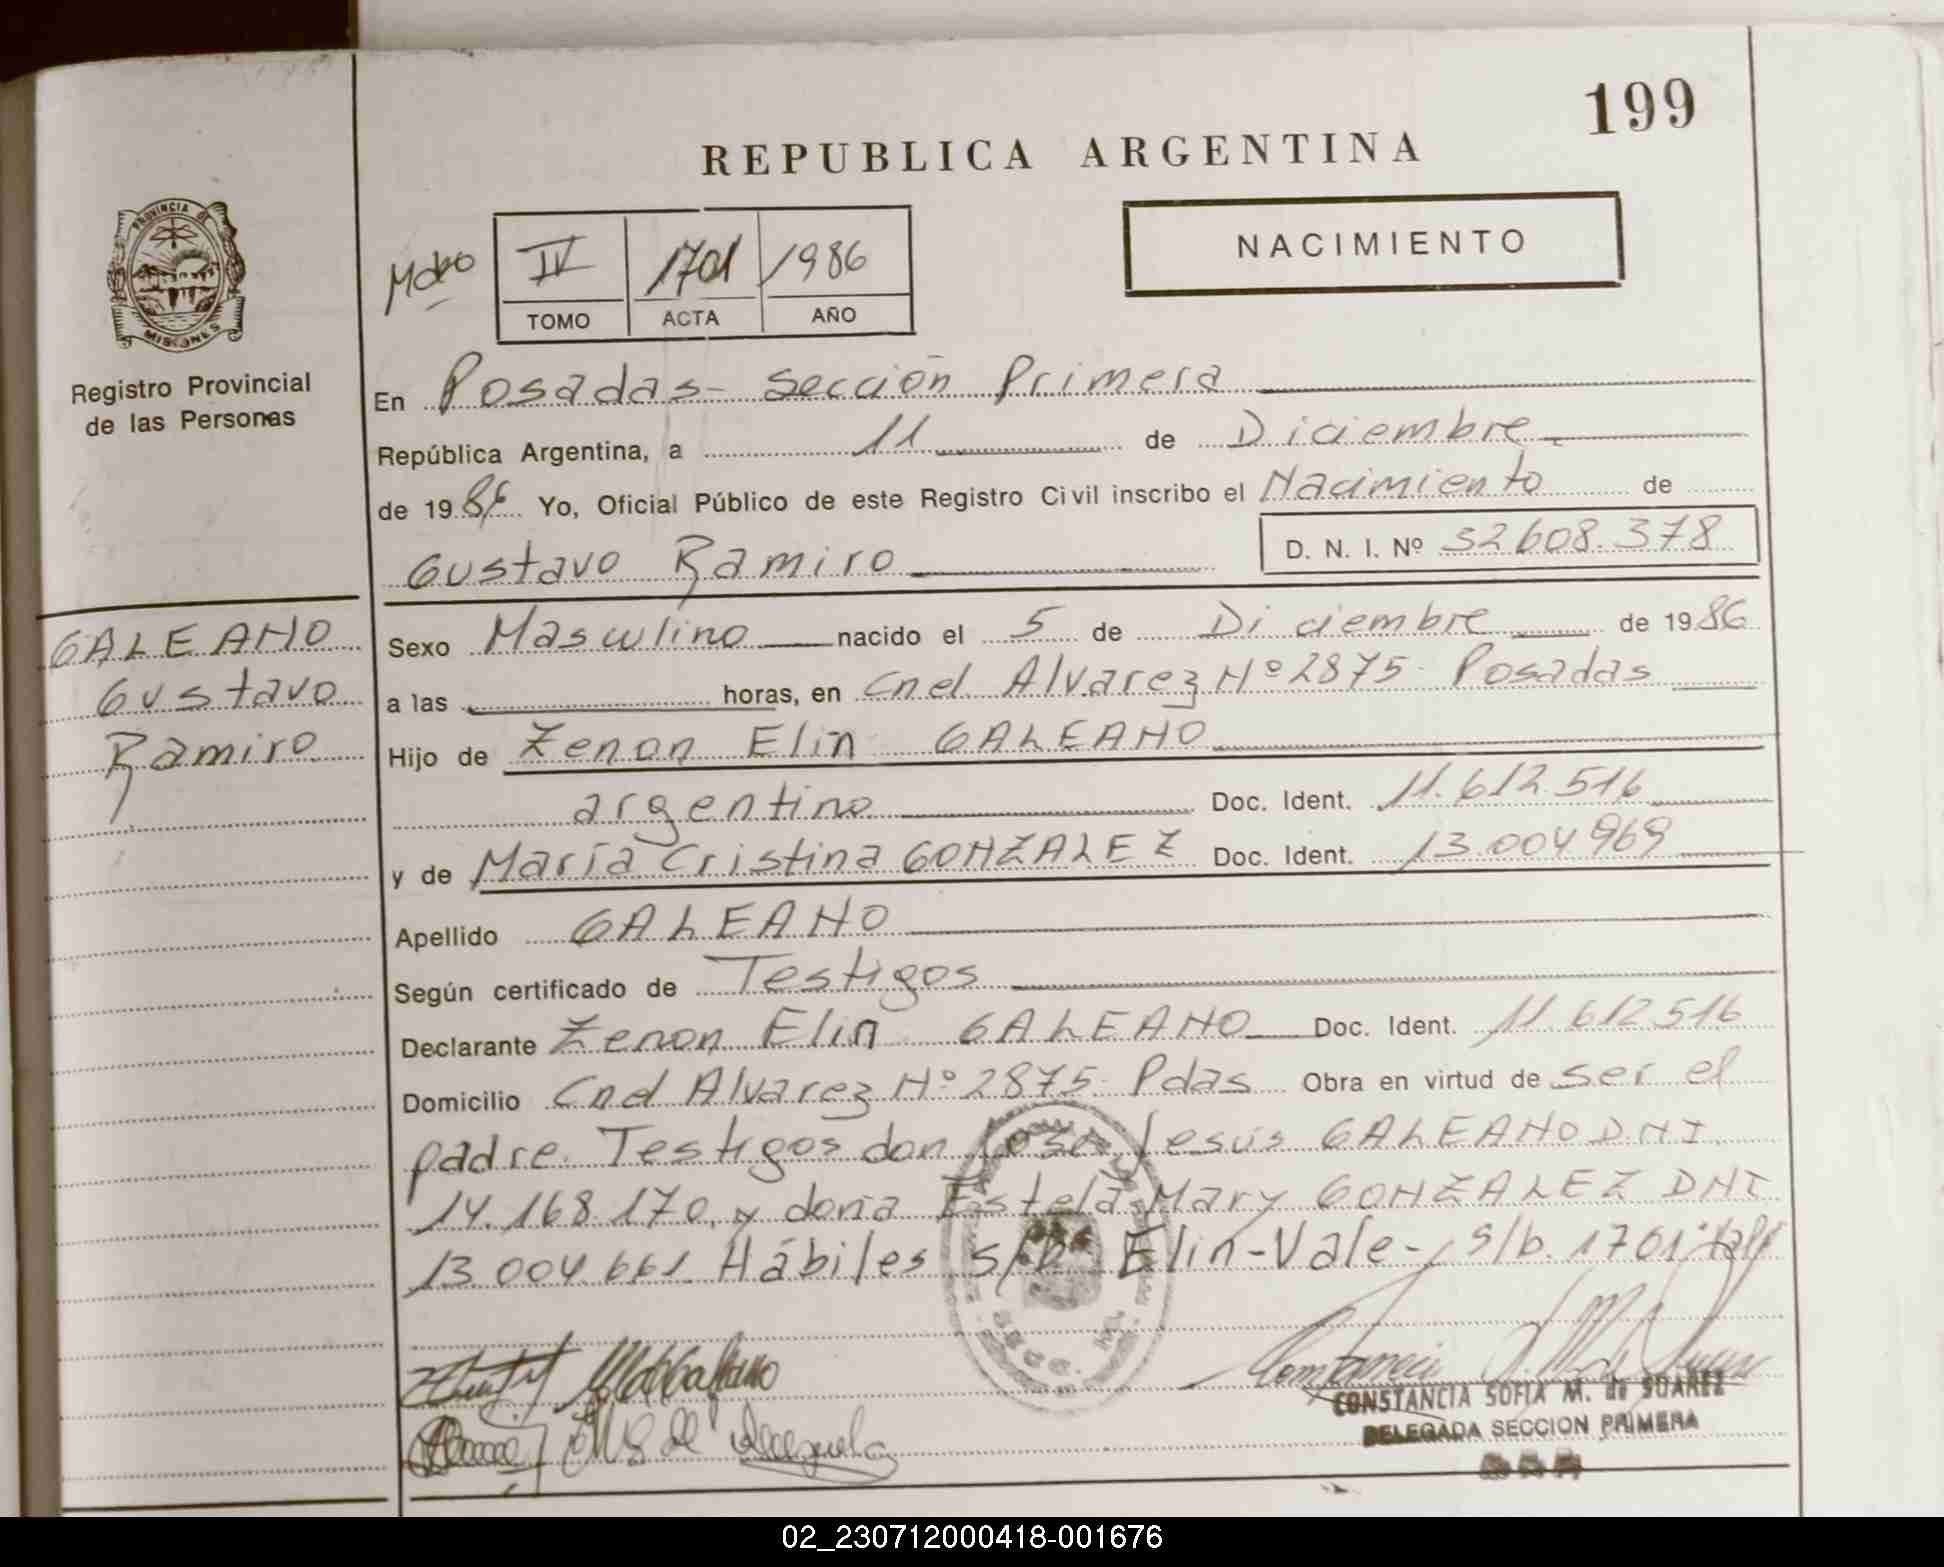 199
REPUBLICA ARGENTINA
PROVINCIA DE
MISIONES
Registro Provincial
de las Personas
IV 1701 1986
TOMO ACTA AÑO
NACIMIENTO
En Posadas- Sección Primera
República Argentina, a 11 de Diciembre
de 1986 Yo, Oficial Público de este Registro Civil inscribo el Nacimiento de
Gustavo Ramiro D. N. I. Nº 32608.378
GALEANO
Gustavo
Ramiro
Sexo Masculino nacido el 5 de Diciembre de 1986
a las horas, en Cnel Alvarez Nº 2875- Posadas
Hijo de Zenon Elin GALEANO
argentino Doc. Ident. 11.612.516
y de María Cristina GONZALEZ Doc. Ident. 13.004969
Apellido GALEANO
Según certificado de Testigos
Declarante Zenon Elin GALEANO Doc. Ident. 11.612516
Domicilio Cnel Alvarez Nº 2875- Pdas Obra en virtud de ser el
padre. Testigos don Jose Jesús GALEANO DNI
14.168.170, y doña Estela Mary GONZALEZ DNI
13.004.661. Hábiles s/b Elin-Vale-, s/b. 1701
CONSTANCIA SOFIA M. de SUAREZ
DELEGADA SECCION PRIMERA
02_230712000418-001676